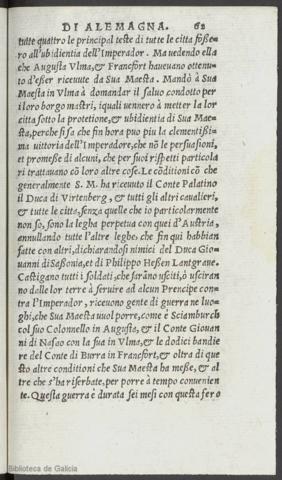 DI ALEMAGNA. 62
tutte quattro le principal teste di tutte le citta fosse-
ro all'ubidientia dell'Imperador. Ma uedendo ella
che Augusta Vlma, & Francfort haueuano ottenu-
to d'esser riceuute da Sua Maesta. Mandò à Sua
Maesta in Vlma à domandar il saluo condotto per
i loro borgo mastri, iquali uennero à metter la lor
citta sotto la protetione, & ubidientia di Sua Mae-
sta, perche si sa che fin hora puo piu la clementißi-
ma uittoria dell'Imperadore, che nō le persuasioni,
et promesse di alcuni, che per suoi rispetti particola
ri trattauano cō loro altre cose. Le cōditioni cō che
generalmente S. M. ha riceuuto il Conte Palatino
il Duca di Virtenberg, & tutti gli altri cauallieri,
& tutte le citta, senza quelle che io particolarmente
non so, sono la legha perpetua con quei d'Austria,
annullando tutte l'altre leghe, che fin qui habbian
fatte con altri, dichiarandosi nimici del Duca Gio-
uanni di Saßonia, et di Philippo Heßen Lantgraue.
Castigano tutti i soldati, che sarāno usciti, ò usciran
no dalle lor terre à seruire ad alcun Prencipe con-
tra l'Imperador, riceuono gente di guerra ne luo-
ghi, che Sua Maesta uuol porre, come è Sciamburch
col suo Colonnello in Augusta, & il Conte Giouan
ni di Nasao con la sua in Vlma, & le dodici bandie
re del Conte di Burra in Francfort, & oltra di que
sto altre conditioni che Sua Maesta ha meße, & al
tre che s'ha riserbate, per porre à tempo conuenien
te. Questa guerra è durata sei mesi con questa fero
Biblioteca de Galicia